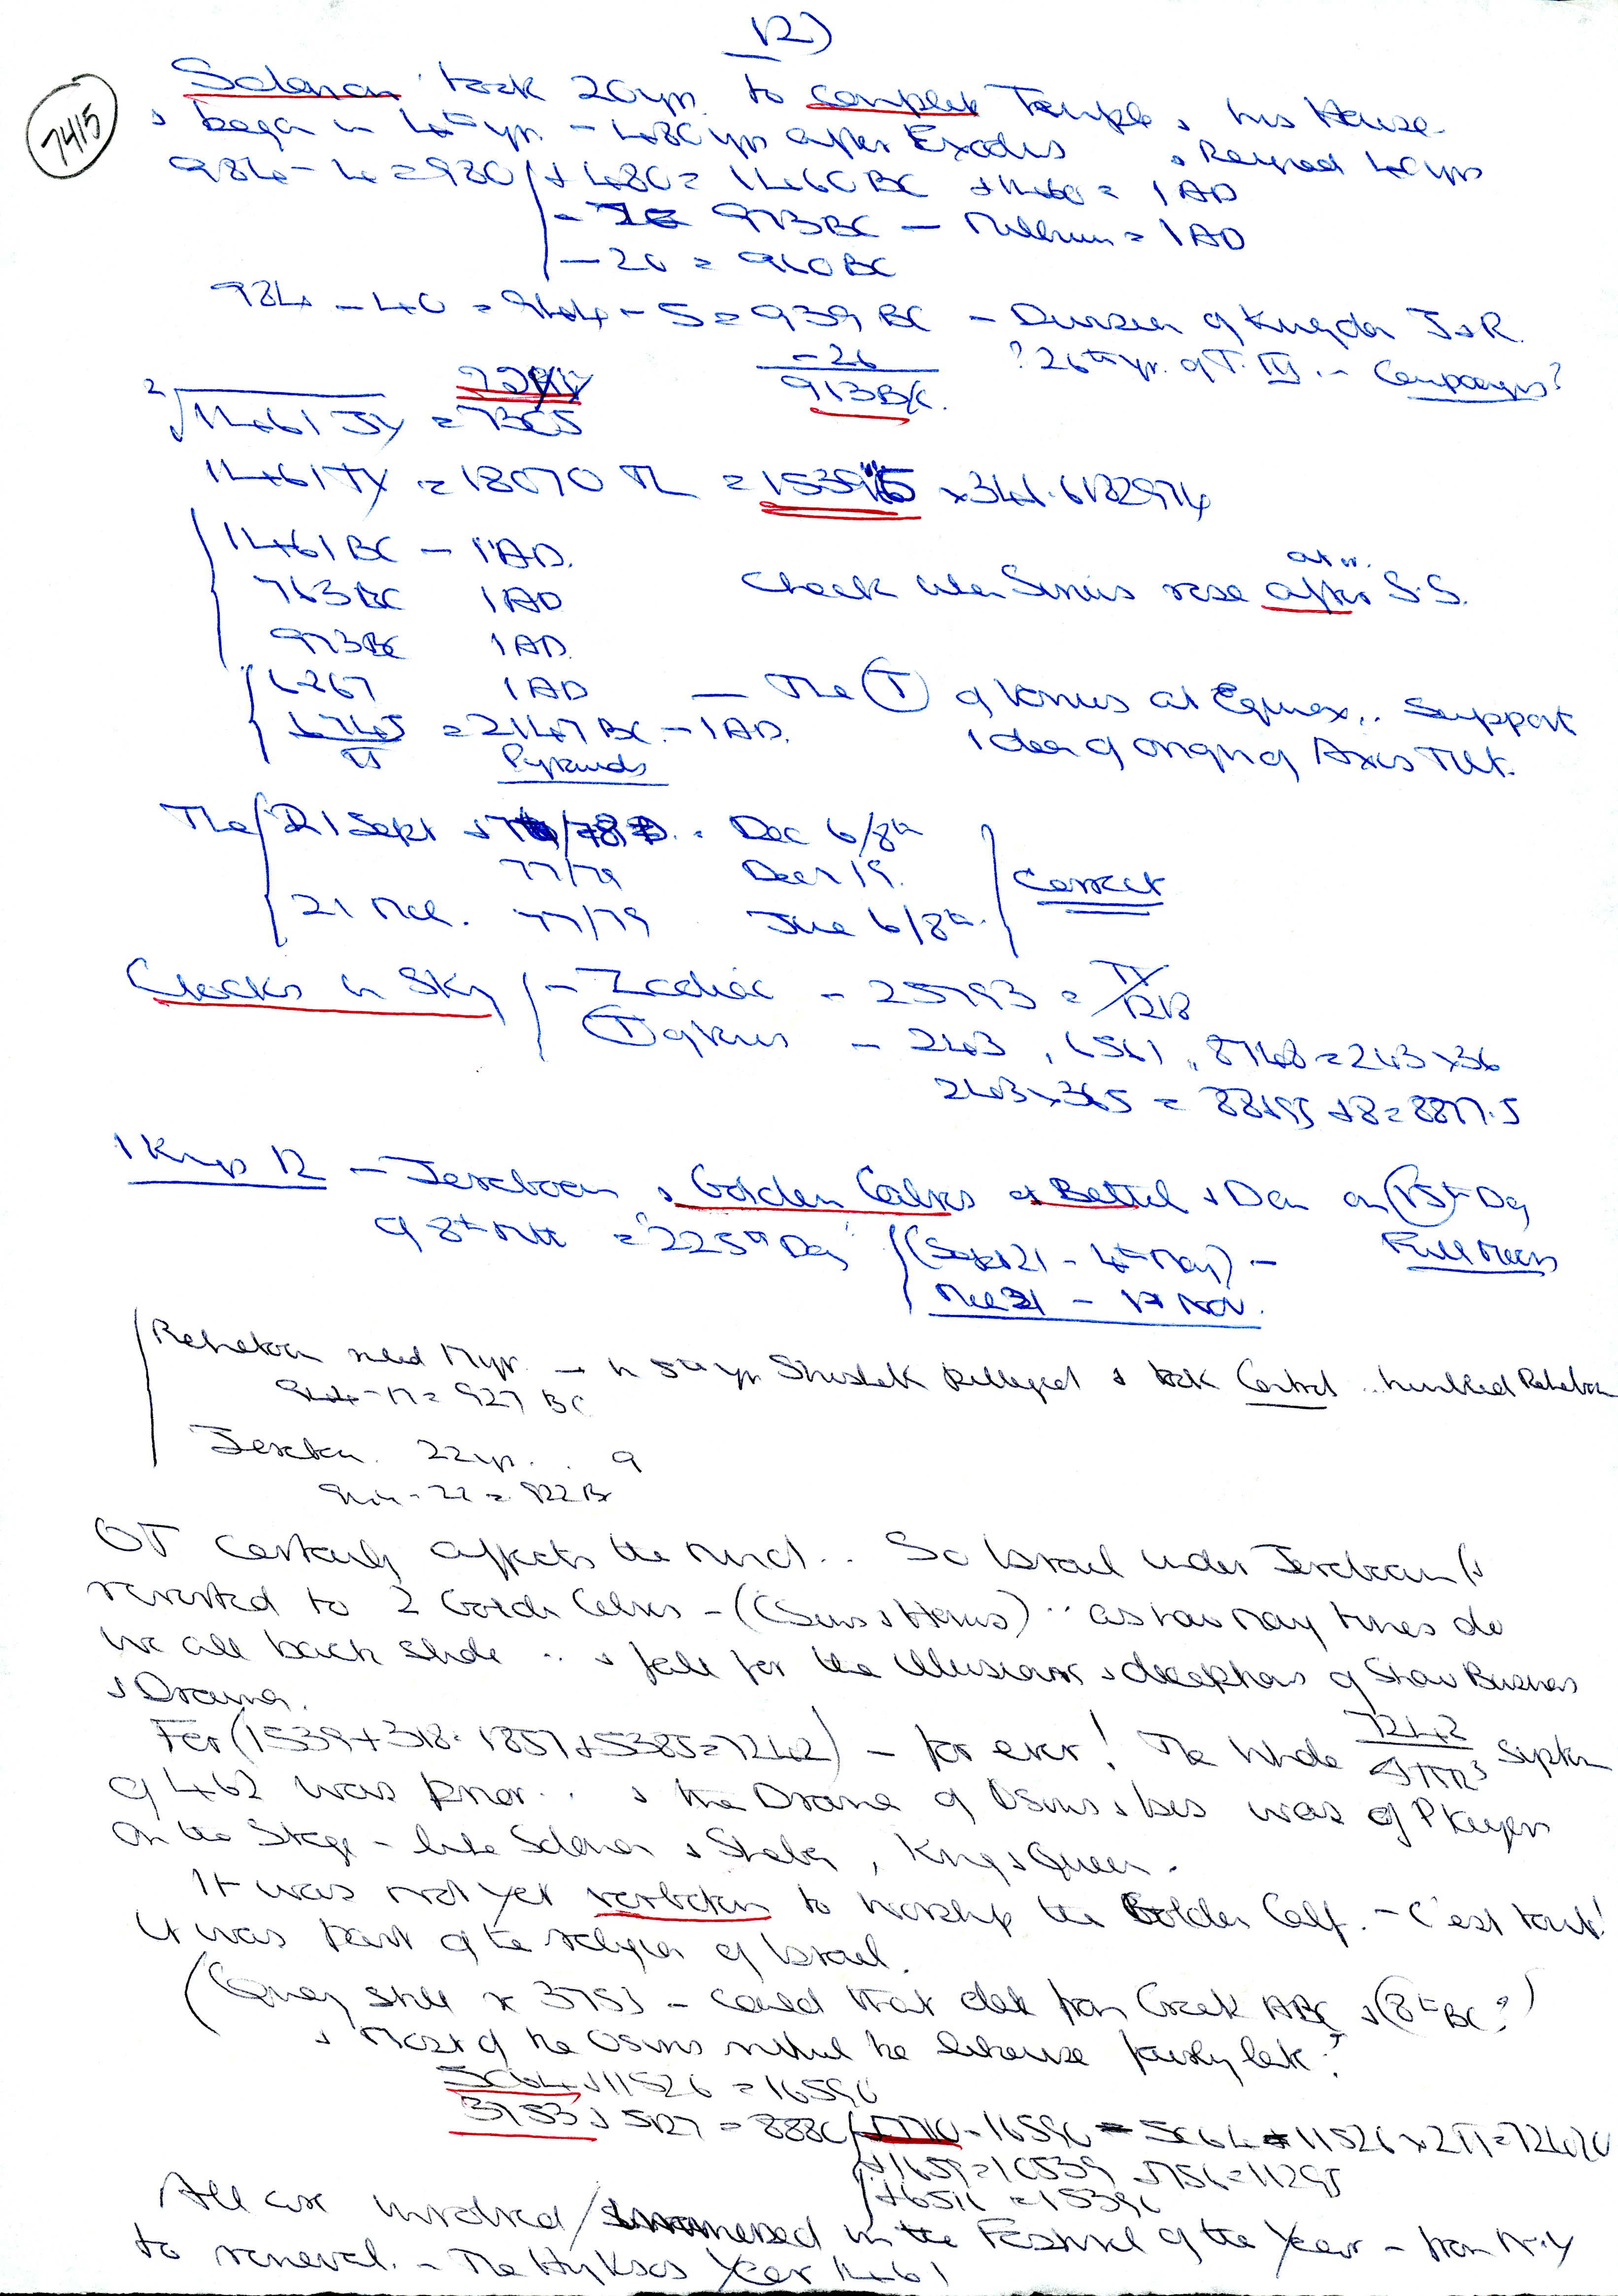 12)
7415
Solomon took 20yr. to complete Temple & his House
& began in 4th yr. - 480 yrs after Exodus & Reigned 40yrs
984 - 4 = 980 + 480 = 1460 BC + 1460 = 1 AD
973 BC - = 1 AD
- 20 = 960 BC
984 - 40 = 944 - 5 = 939 BC - Division of Kingdom J & R.
- 26 ? 26th yr. of T. III .. Campaigns?
913 BC.
1461 JY =
1461 TY = 18070 TL = 15395 x 341.6132974
1461 BC - 1 AD.
763 BC 1 AD
973 BC 1 AD.
Check when Sirius rose after S.S.
4267 1 AD - The (T) of Venus at Equinox .. Support
6745 = 2147 BC - 1 AD. idea of origin of Axis Tilt.
π Pyramids
The 21 Sept & /78 D. = Dec 6/8th
77/79 Decr 19.
21 Mch. 77/79 June 6/8th.
Correct
Clocks in Sky - Zodiac - 25793 =
(T) of Venus - 243, 6561, 8748 = 243 x 36
243 x 365 =
1 Kings 12 - Jeroboam & Golden Calves at Bethel & Dan on 15th Day
of 8th Mth = 225th Day (Sept 21 - 4th May) - Full Moon
Mch 21 - Nov.
Rehoboam ruled 17yr. - in 5th yr Shishak pillaged & took Control .. humbled Rehoboam
944 - 17 = 927 BC
Jeroboam 22yr. .
944 - 22 = 922 BC
OT certainly affects the mind .. So Israel under Jeroboam
reverted to 2 Golden Calves - (Osiris & Horus) .. as how many times do
we all back slide .. & fall for the illusions & deceptions of Show Business
& Drama.
For (1539 + 318 = 1857 + 5385 = 7242) - for ever! The Whole 7242
of 462 was prior .. & the Drama of Osiris & Isis was of Players
on the Stage - like Solomon & Sheba, King & Queen.
It was not yet verboten to worship the Golden Calf. - C'est tout!
It was part of the religion of Israel.
(Query still x 3753 - could that date from Greek ABC & (8th BC?)
& most of the Osiris ritual be likewise fairly late?
5064 + 11526 = 16590
3753 + 5127 = 8880 + 7710 = 16590 = 5064 + 11526 x 2π = 72420
+ 1659 = 10539 + 756 = 11295
+ 6516 = 15396
All are involved/immersed in the Festival of the Year - from N.Y
to renewal. - The Hyksos Year 1461